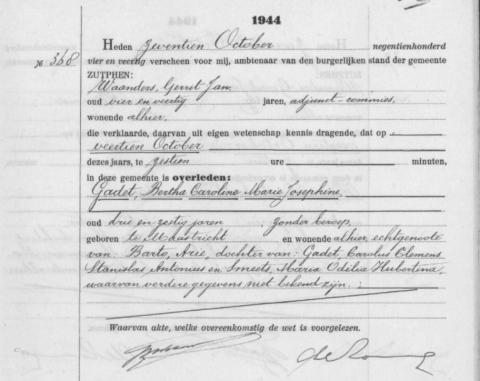 1944
Heden zeventien October negentienhonderd
№ 368 vier en veertig verscheen voor mij, ambtenaar van den burgerlijken stand der gemeente
ZUTPHEN:
Waanders, Gerrit Jan
oud vier en veertig jaren, adjunct-commies,
wonende alhier,
die verklaarde, daarvan uit eigen wetenschap kennis dragende, dat op
veertien October
dezes jaars, te zestien ure minuten,
in deze gemeente is overleden:
Gadet, Bertha Caroline Marie Josephine,
oud drie en zestig jaren zonder beroep,
geboren te Maastricht en wonende alhier, echtgenoote
van: Barto, Arie, dochter van: Gadet, Carolus Clemens
Stanislas Antonius en Smeets, Maria Odelia Hubertina,
waarvan verdere gegevens niet bekend zijn.
Waarvan akte, welke overeenkomstig de wet is voorgelezen.